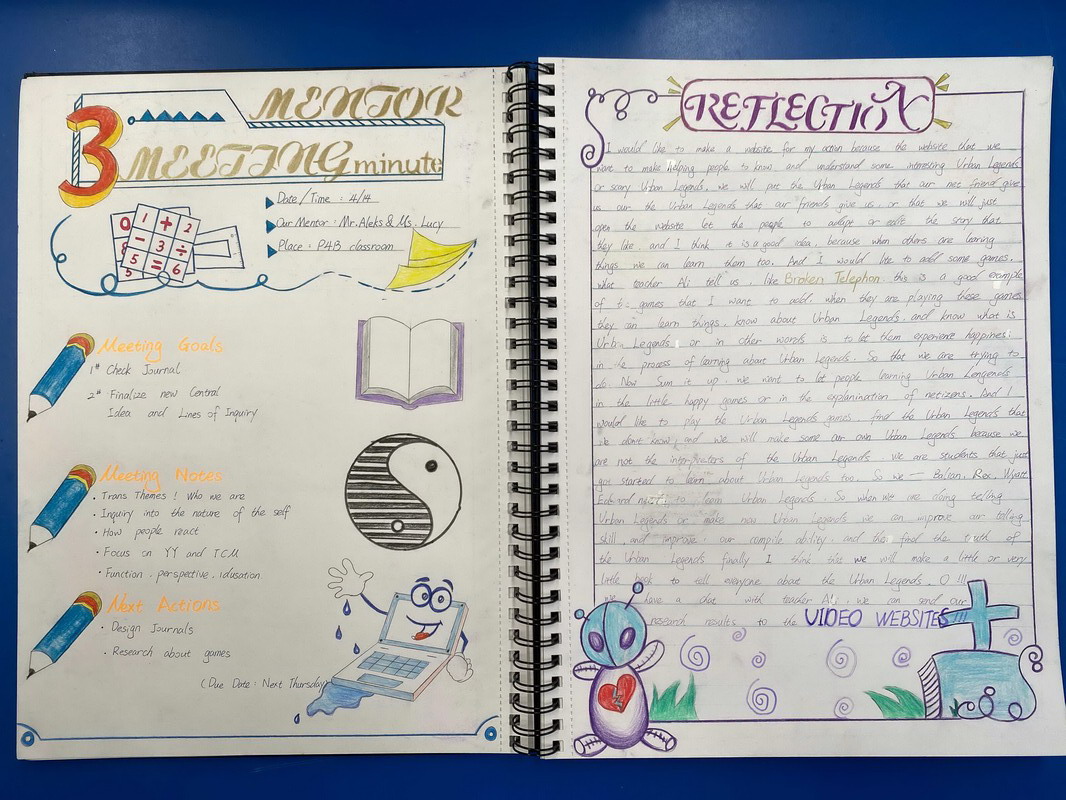 3
MENTOR
MEETING minute
Date/Time : 4/14
Our Mentor : Mr.Aleks & Ms. Lucy
Place : P4B classroom
0 1 + 2
- 3 ÷
5 = 6
Meeting Goals
1# Check Journal
2# Finalize new Central
Idea and Lines of Inquiry
Meeting Notes
· Trans Themes ! Who we are
· Inquiry into the nature of the self
· How people react
· Focus on YY and TCM
· Function . perspective . idusation
Next Actions
· Design Journals
· Research about games
(Due Date : Next Thursday)
REFLECTION
I would like to make a website for my action because the website that we
want to make helping people to know and understand some interesting Urban Legends
or scary Urban Legends. we will put the Urban Legends that our net friend give
us our the Urban Legends that our friends give us . or that we will just
open the website let the people to adapt or edit the story that
they like . and I think it is a good idea, because when others are learing
things we can learn them too. And I would like to add some games.
what teacher Ali tell us , like Broken Telephon . this is a good example
of games that I want to add . when they are playing these games
they can learn things . know about Urban Legends . and know what is
Urban Legends . or in other words is to let them experience happines
in the process of learning about Urban Legends. So that we are trying to
do. Now Sum it up . we want to let people learning Urban Lengends
in the little happy games or in the explanination of netizens. And I
would like to play the Urban Legends games . find the Urban Legends that
we don't know , and we will make some our own Urban Legends because we
are not the interpreters of the Urban Legends . we are students that just
got started to learn about Urban Legends too. So we — Balian, Rex, Wyatt
Edward to learn Urban Legends . So when we are doing telling
Urban Legends or make new Urban Legends we can improve our telling
skill , and improve our compile ability . and then find the truth of
the Urban Legends finally I think that we will make a little or very
little book to tell everyone about the Urban Legends. O !!!
we have a chat with teacher Ali . we can send our
research results to the VIDEO WEBSITES !!!